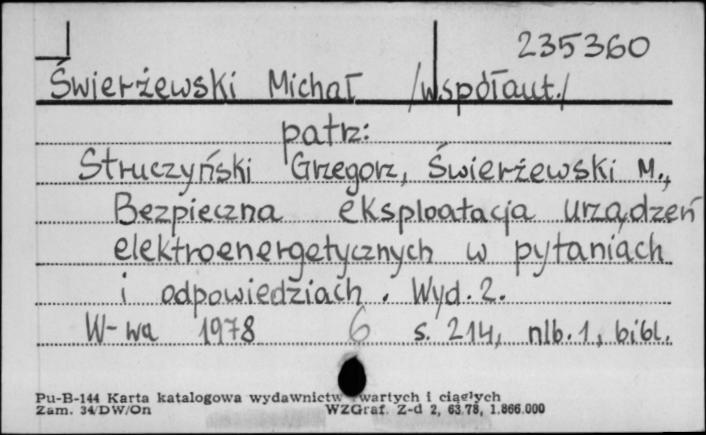 235360
Świerżewski Michał /współaut./
patrz:
Struczyński Grzegorz, Świerżewski M.,
Bezpieczna eksploatacja urządzeń
elektroenergetycznych w pytaniach
i odpowiedziach. Wyd. 2.
W-wa 1978 6 s. 214, nlb. 1, bibl.
Pu-B-144 Karta katalogowa wydawnictw zwartych i ciągłych
Zam. 34/DW/On WZGraf. Z-d 2, 63.78, 1.866.000